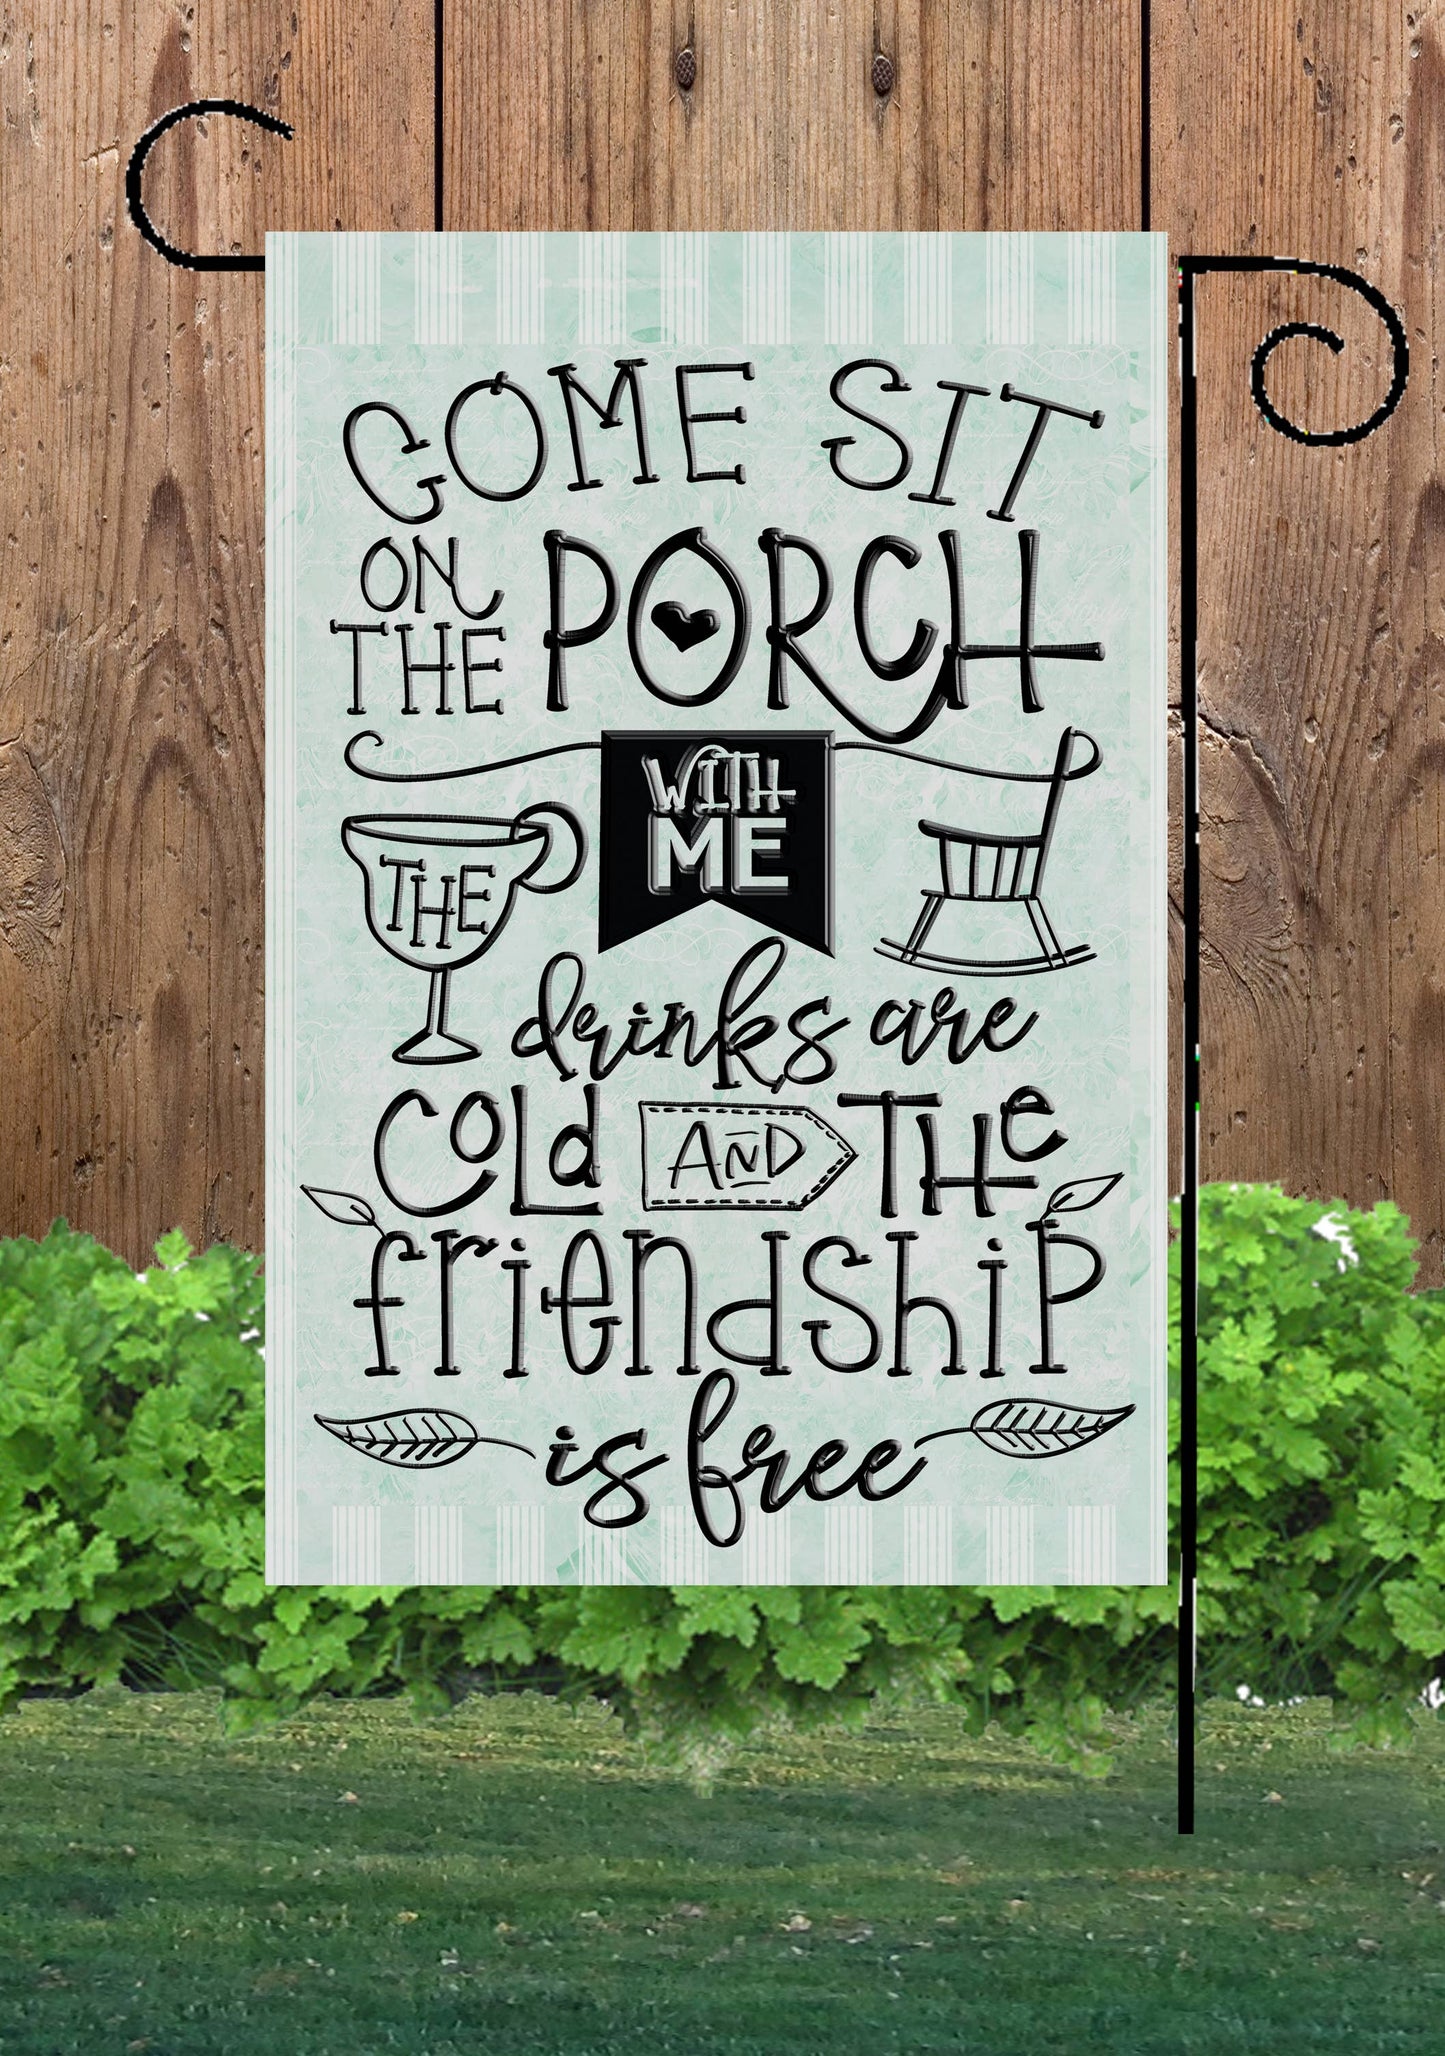 COME SIT
ON
THE PORCH
WITH
ME
THE
drinks are
Cold AND THe
friendship
is free